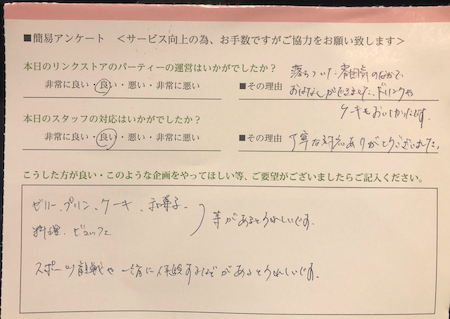 ■簡易アンケート ＜サービス向上の為、お手数ですがご協力をお願い致します＞
本日のリンクストアのパーティーの運営はいかがでしたか？
非常に良い・良い・悪い・非常に悪い
■その理由
落ちついた雰囲気のなかで
おはなしができました。ドリンクや
ケーキもおいしかったです。
本日のスタッフの対応はいかがでしたか？
非常に良い・良い・悪い・非常に悪い
■その理由
丁寧な対応ありがとうございました。
こうした方が良い・このような企画をやってほしい等、ご要望がございましたらご記入ください。
ゼリー、プリン、ケーキ、和菓子、
料理、ビュッフェ
等があるとうれしいです。
スポーツ観戦や一緒に体験するなどがあるとうれしいです。